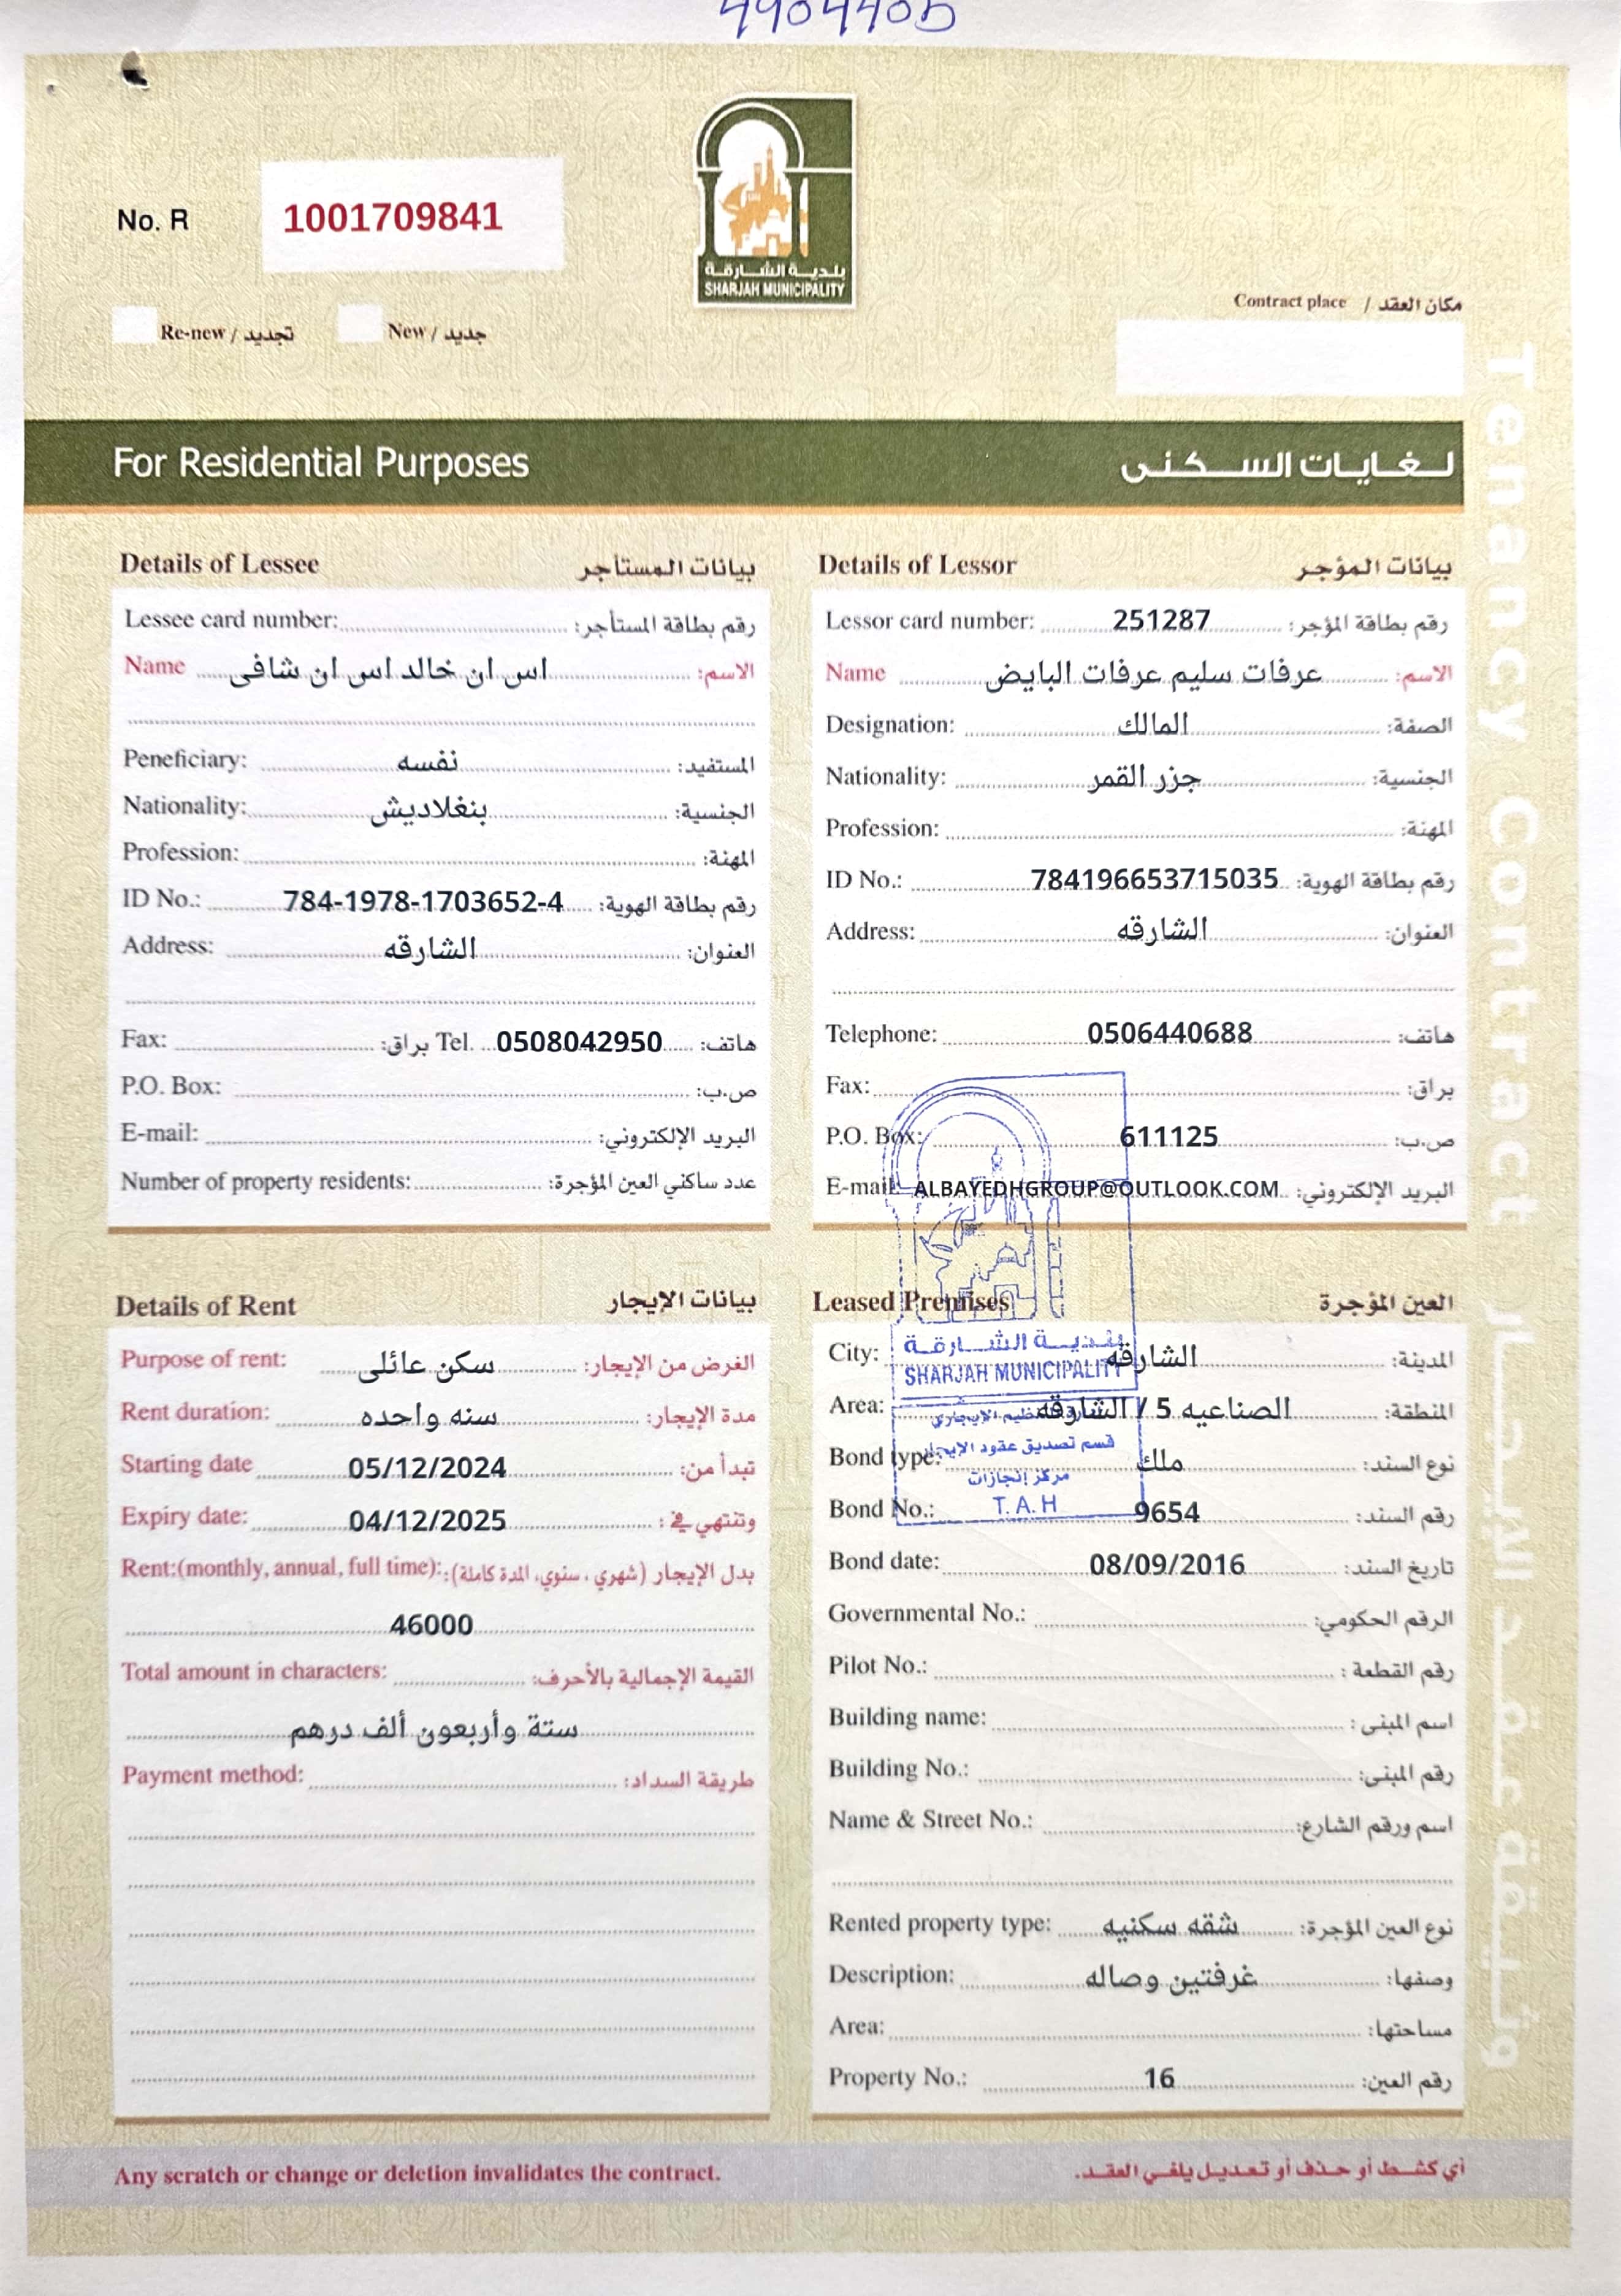 No. R 1001709841
بلدية الشارقة
SHARJAH MUNICIPALITY
Contract place / مكان العقد
Re-new / تجديد New / جديد
For Residential Purposes لغايات السكنى
Tenancy Contract
Details of Lessee بيانات المستأجر
Lessee card number: رقم بطاقة المستأجر:
Name اس ان خالد اس ان شافى الاسم:
Peneficiary: نفسه المستفيد:
Nationality: بنغلاديش الجنسية:
Profession: المهنة:
ID No.: 784-1978-1703652-4 رقم بطاقة الهوية:
Address: الشارقه العنوان:
Fax: براق: Tel. 0508042950 هاتف:
P.O. Box: ص.ب:
E-mail: البريد الإلكتروني:
Number of property residents: عدد ساكني العين المؤجرة:
Details of Lessor بيانات المؤجر
Lessor card number: 251287 رقم بطاقة المؤجر:
Name عرفات سليم عرفات البايض الاسم:
Designation: المالك الصفة:
Nationality: جزر القمر الجنسية:
Profession: المهنة:
ID No.: 784196653715035 رقم بطاقة الهوية:
Address: الشارقه العنوان:
Telephone: 0506440688 هاتف:
Fax: براق:
P.O. Box: 611125 ص.ب:
E-mail: ALBAYEDHGROUP@OUTLOOK.COM البريد الإلكتروني:
Details of Rent بيانات الإيجار
Purpose of rent: سكن عائلى الغرض من الإيجار:
Rent duration: سنه واحده مدة الإيجار:
Starting date 05/12/2024 تبدأ من:
Expiry date: 04/12/2025 وتنتهي في:
Rent:(monthly, annual, full time): بدل الإيجار (شهري، سنوي، المدة كاملة):
46000
Total amount in characters: القيمة الإجمالية بالأحرف:
ستة وأربعون ألف درهم
Payment method: طريقة السداد:
Leased Premises العين المؤجرة
City: الشارقه المدينة:
Area: الصناعيه 5 / الشارقه المنطقة:
Bond type: ملك نوع السند:
Bond No.: 9654 رقم السند:
Bond date: 08/09/2016 تاريخ السند:
Governmental No.: الرقم الحكومي:
Pilot No.: رقم القطعة :
Building name: اسم المبنى :
Building No.: رقم المبنى:
Name & Street No.: اسم ورقم الشارع:
Rented property type: شقه سكنيه نوع العين المؤجرة:
Description: غرفتين وصاله وصفها:
Area: مساحتها:
Property No.: 16 رقم العين:
بلدية الشارقة
SHARJAH MUNICIPALITY
قسم تصديق عقود الايجار
مركز إنجازات
T.A.H
Any scratch or change or deletion invalidates the contract. أي كشط أو حذف أو تعديل يلغي العقد.